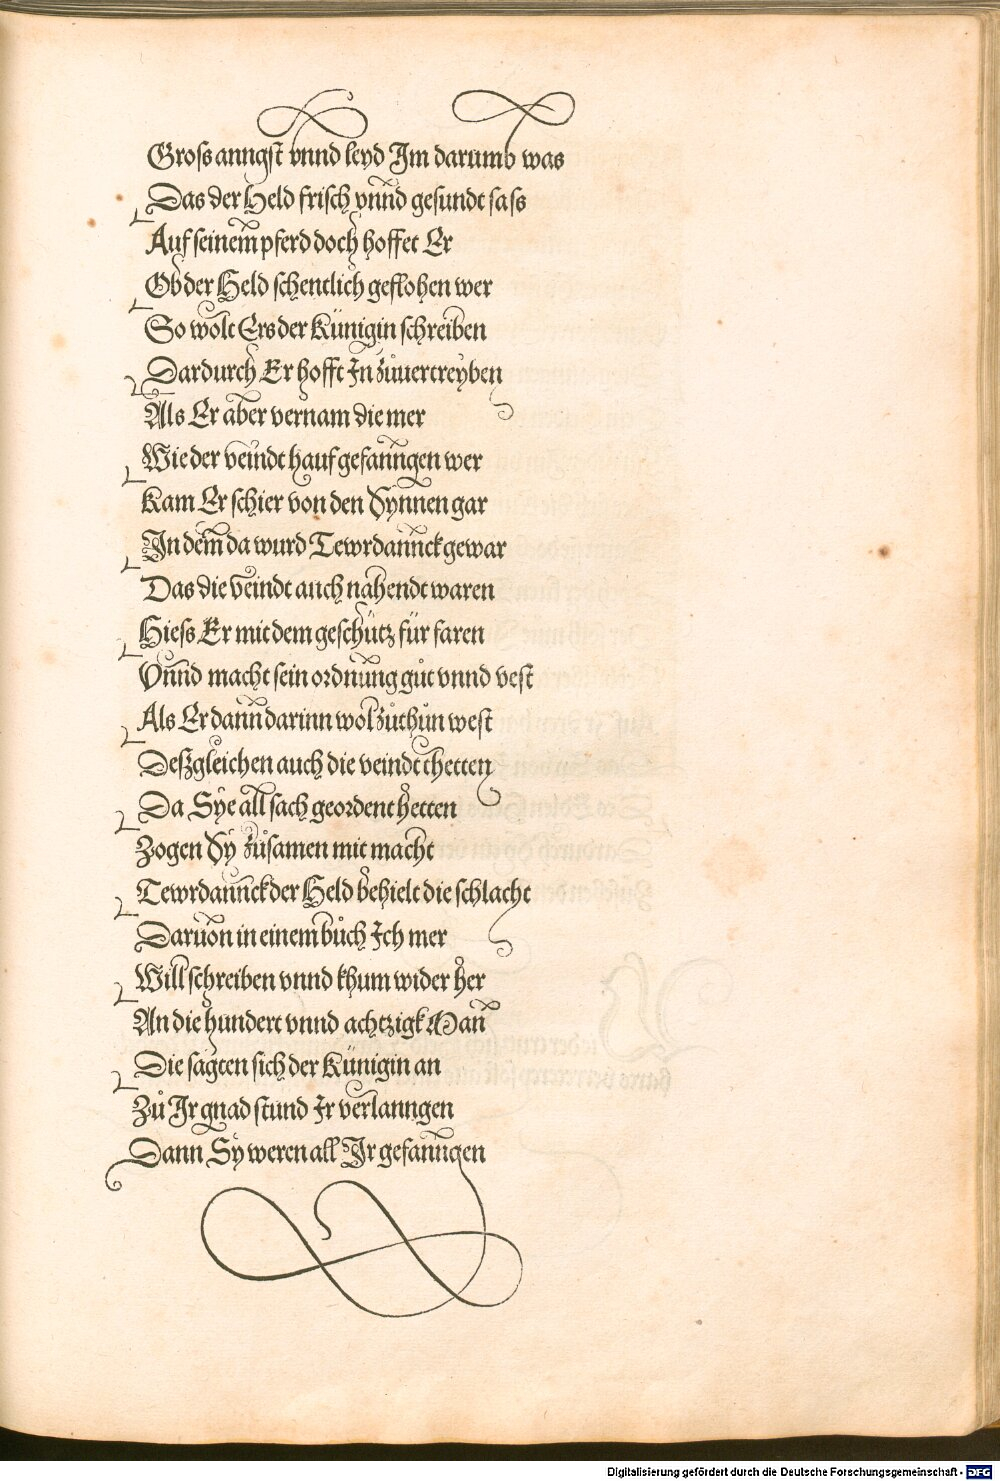 Gross anngst vnnd leyd Im darumb was
Das der Held frisch vnnd gesundt sass
Auf seinem pferd doch hoffet Er
Ob der Held schentlich geflohen wer
So wolt Ers der Künigin schreiben
Dardurch Er hofft In zůuertreyben
Als Er aber vernam die mer
Wie der veindt hauf gefanngen wer
Kam Er schier von den Synnen gar
In dem da wurd Tewrdannck gewar
Das die veindt auch nahendt waren
Hiess Er mit dem geschütz für faren
Vnnd macht sein ordnung gůt vnnd vest
Als Er dann darinn wol zůthůn west
Deßgleichen auch die veindt thetten
Da Sÿe all sach geordent hetten
Zogen Sÿ zůsamen mit macht
Tewrdannck der Held behielt die schlacht
Daruon in einem bůch Ich mer
Will schreiben vnnd khum wider her
An die hundert vnnd achtzigk Man
Die sagten sich der Künigin an
Zů Ir gnad stund Ir verlanngen
Dann Sÿ weren all Ir gefanngen
Digitalisierung gefördert durch die Deutsche Forschungsgemeinschaft - DFG